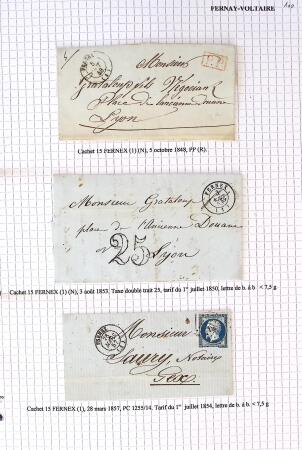 FERNAY-VOLTAIRE
Monsieur
P.P.
Grataloup fils Négociant
Place de l'ancienne douane
Lyon
Cachet 15 FERNEX (1) (N), 5 octobre 1848, PP (R).
Monsieur Grataloup
FERNEX
place de l'Ancienne Douane
25 Lyon
Cachet 15 FERNEX (1) (N), 3 août 1853. Taxe double trait 25, tarif du 1er juillet 1850, lettre de b. à b. < 7,5 g
Monsieur
Saury, Notaire
Gex
Cachet 15 FERNEX (1), 28 mars 1857, PC 1255/14. Tarif du 1er juillet 1854, lettre de b. à b. < 7,5 g